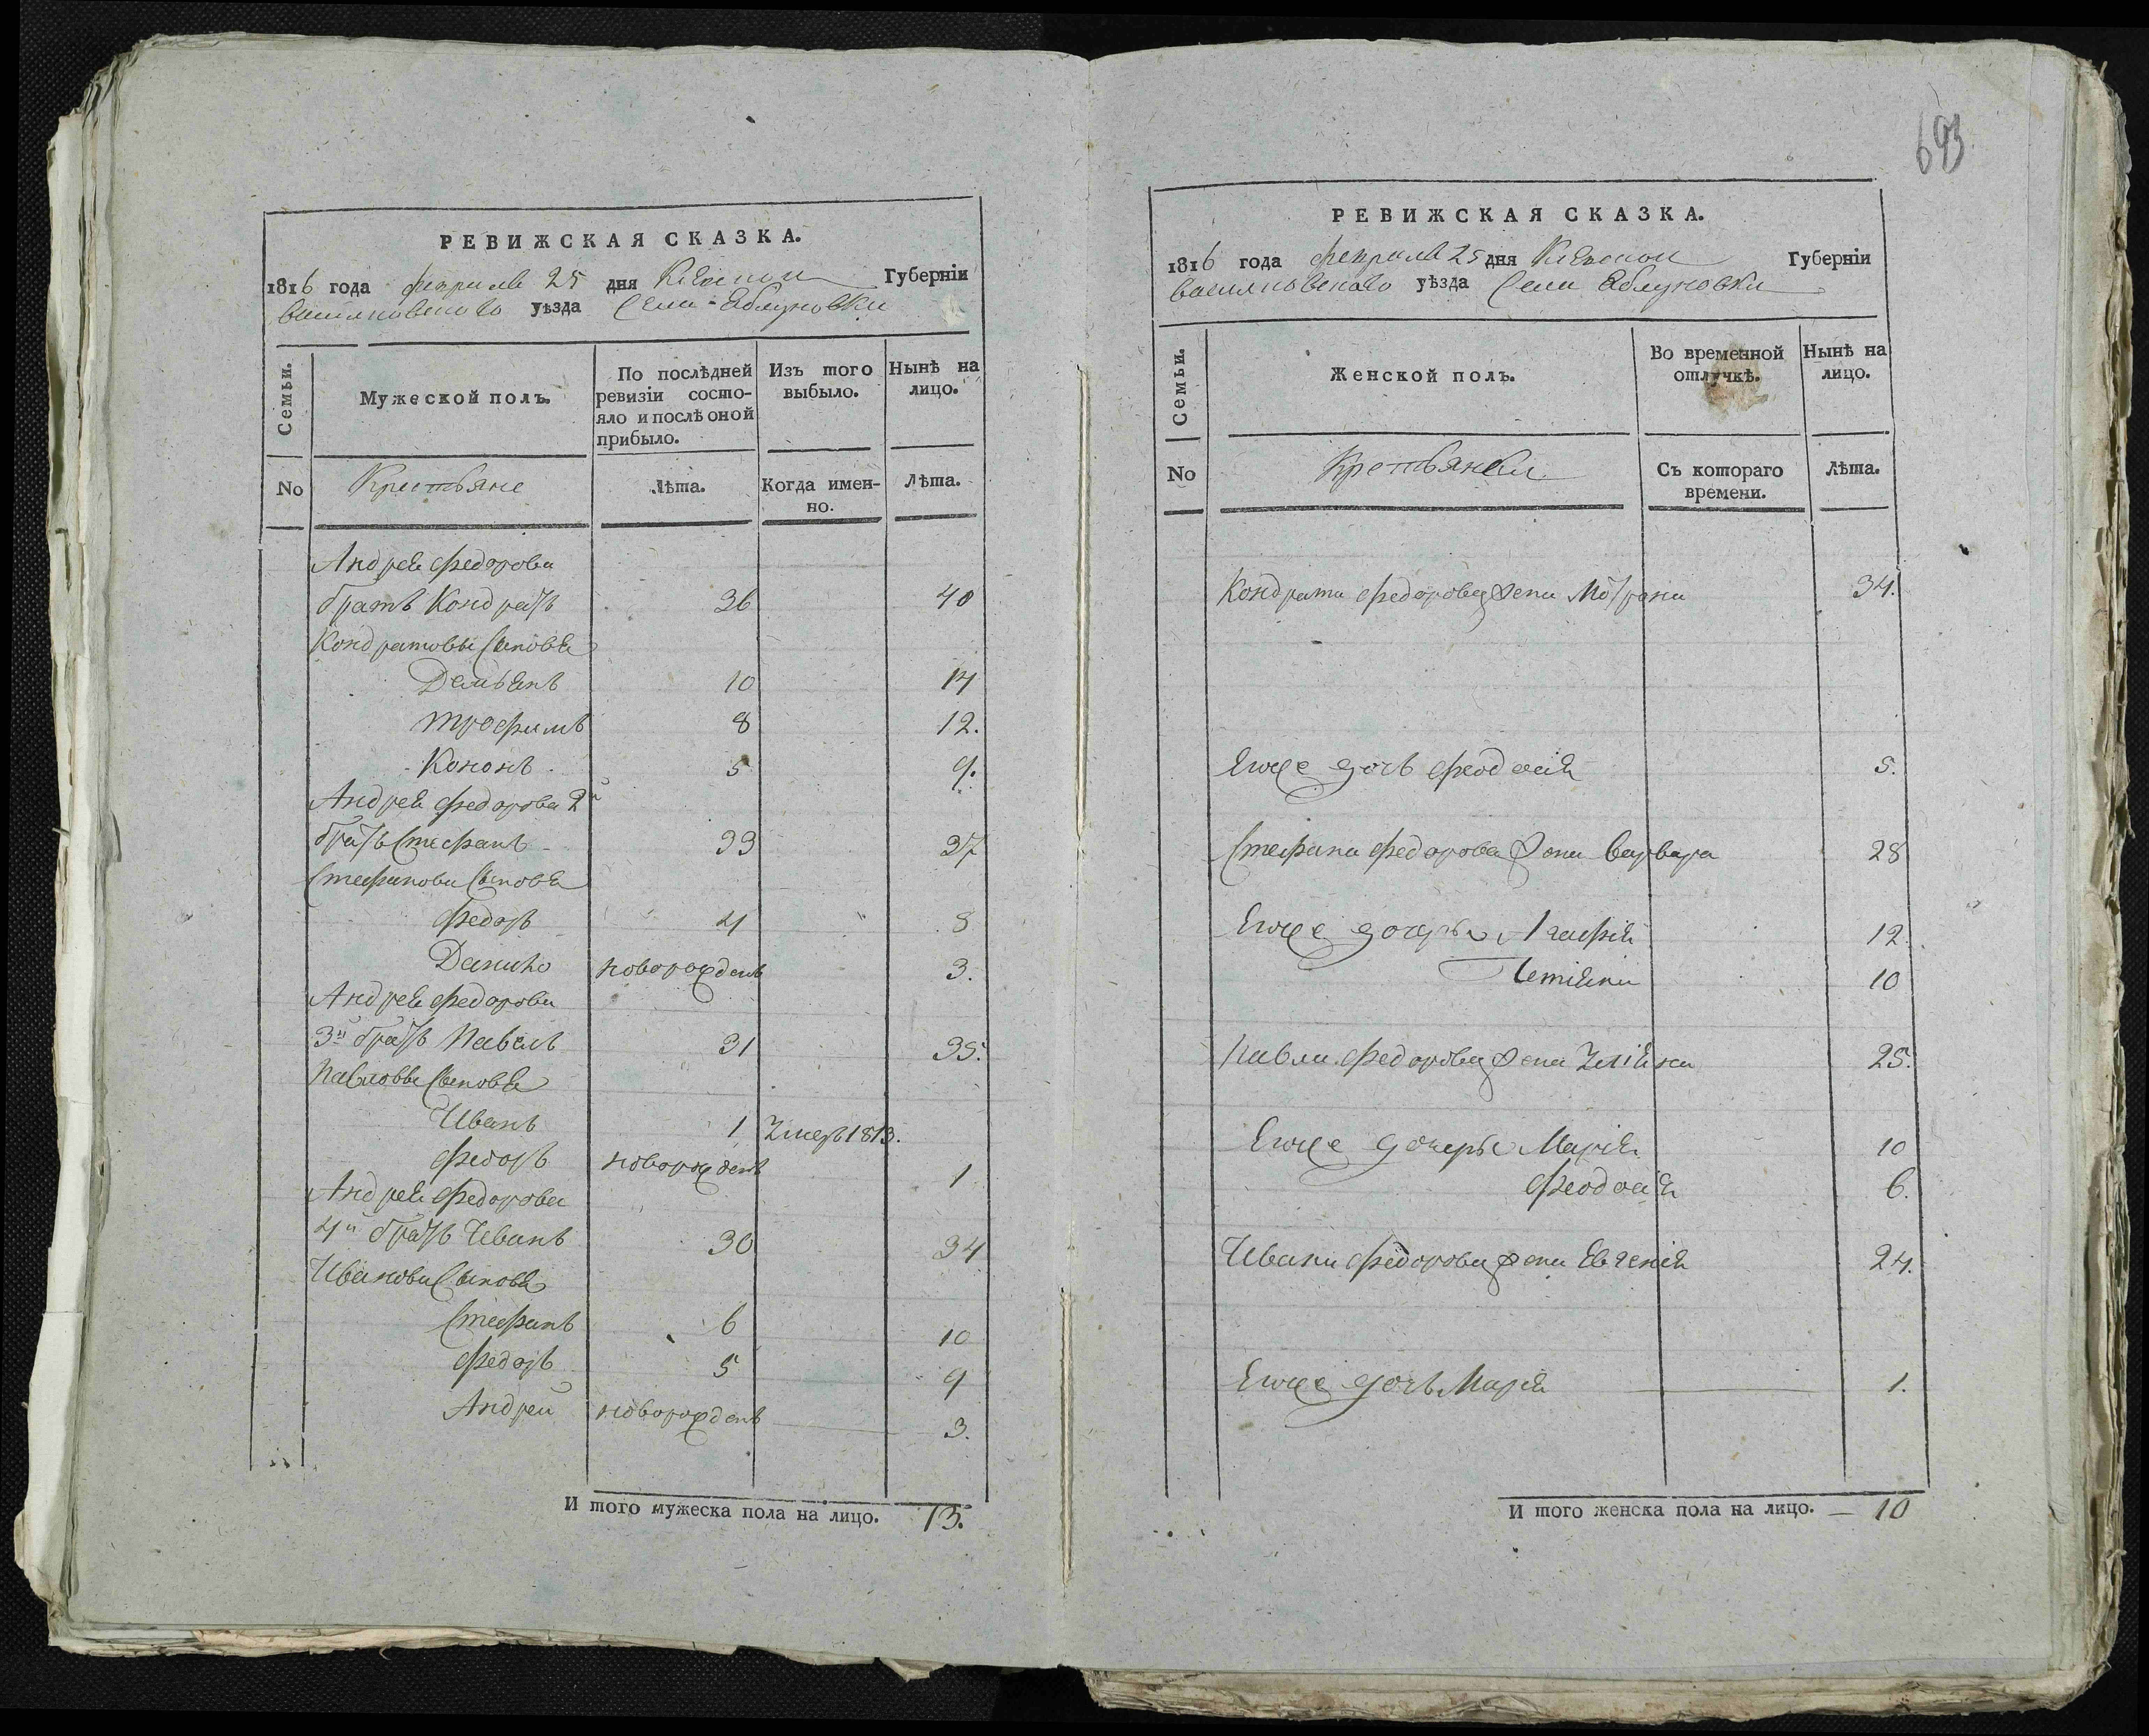 РЕВИЖСКАЯ СКАЗКА.
1816 года февраля 25 дня Киевской Губернїи
васильковского уѣзда Села Яблуновки
Семьи.
Мужеской полъ.
По послѣдней ревизїи состояло и послѣ оной прибыло.
Изъ того выбыло.
Нынѣ на лицо.
No
Крестьяне
Лѣта.
Когда именно.
Лѣта.
Андрея Федорова
братъ Кондратъ 36 40
Кондратовы Сыновья
Демьянъ 10 14
Трофимъ 8 12.
Кононъ 5 9.
Андрея Федорова 2й
братъ Стефанъ 33 37
Стефанови Сыновья
Федоръ 4 8
Данило новорожденъ 3.
Андрея Федорова
3й братъ Павелъ 31 35.
Павловы Сыновья
Иванъ 1 Умеръ 1813.
Федоръ новорожденъ 1
Андрея Федорова
4й братъ Иванъ 30 34
Иванови Сыновья
Стефанъ 6 10
Федоръ 5 9
Андрей новорожденъ 3.
И того мужеска пола на лицо. 13.
693
РЕВИЖСКАЯ СКАЗКА.
1816 года февраля 25 дня Киевской Губернїи
васильковского уѣзда Села Яблуновки
Семьи.
Женской полъ.
Во временной отлучкѣ.
Нынѣ на лицо.
No
Крестьянки
Съ котораго времени.
Лѣта.
Кондрата Федорова жена Мотрона 34.
Евоже дочь Феодосія 5.
Стефана Федорова жена Варвара 28
Евоже дочеры Агафія 12.
Татіяна 10
Павла Федорова жена Уліяна 25.
Евоже дочеры Марія 10
Феодосія 6.
Ивана Федорова жена Евгенія 24.
Евоже дочь Марія 1.
И того женска пола на лицо. — 10